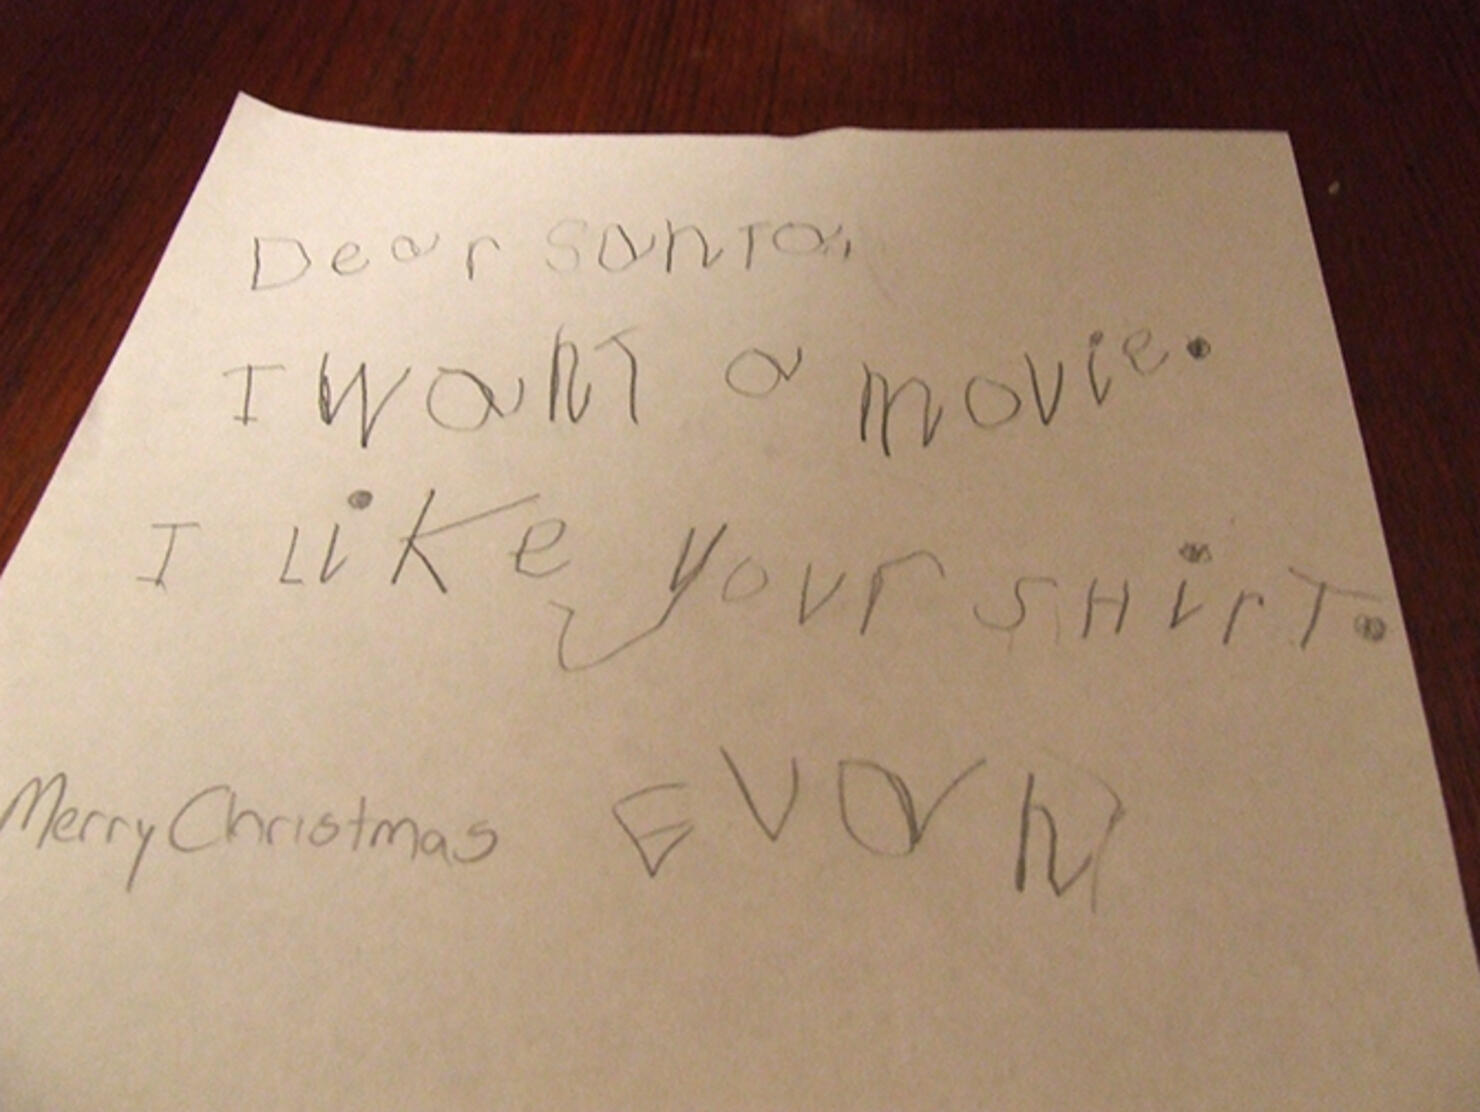 Dear Santa,
I want a movie.
I Like your sHirT.
Merry Christmas Evan